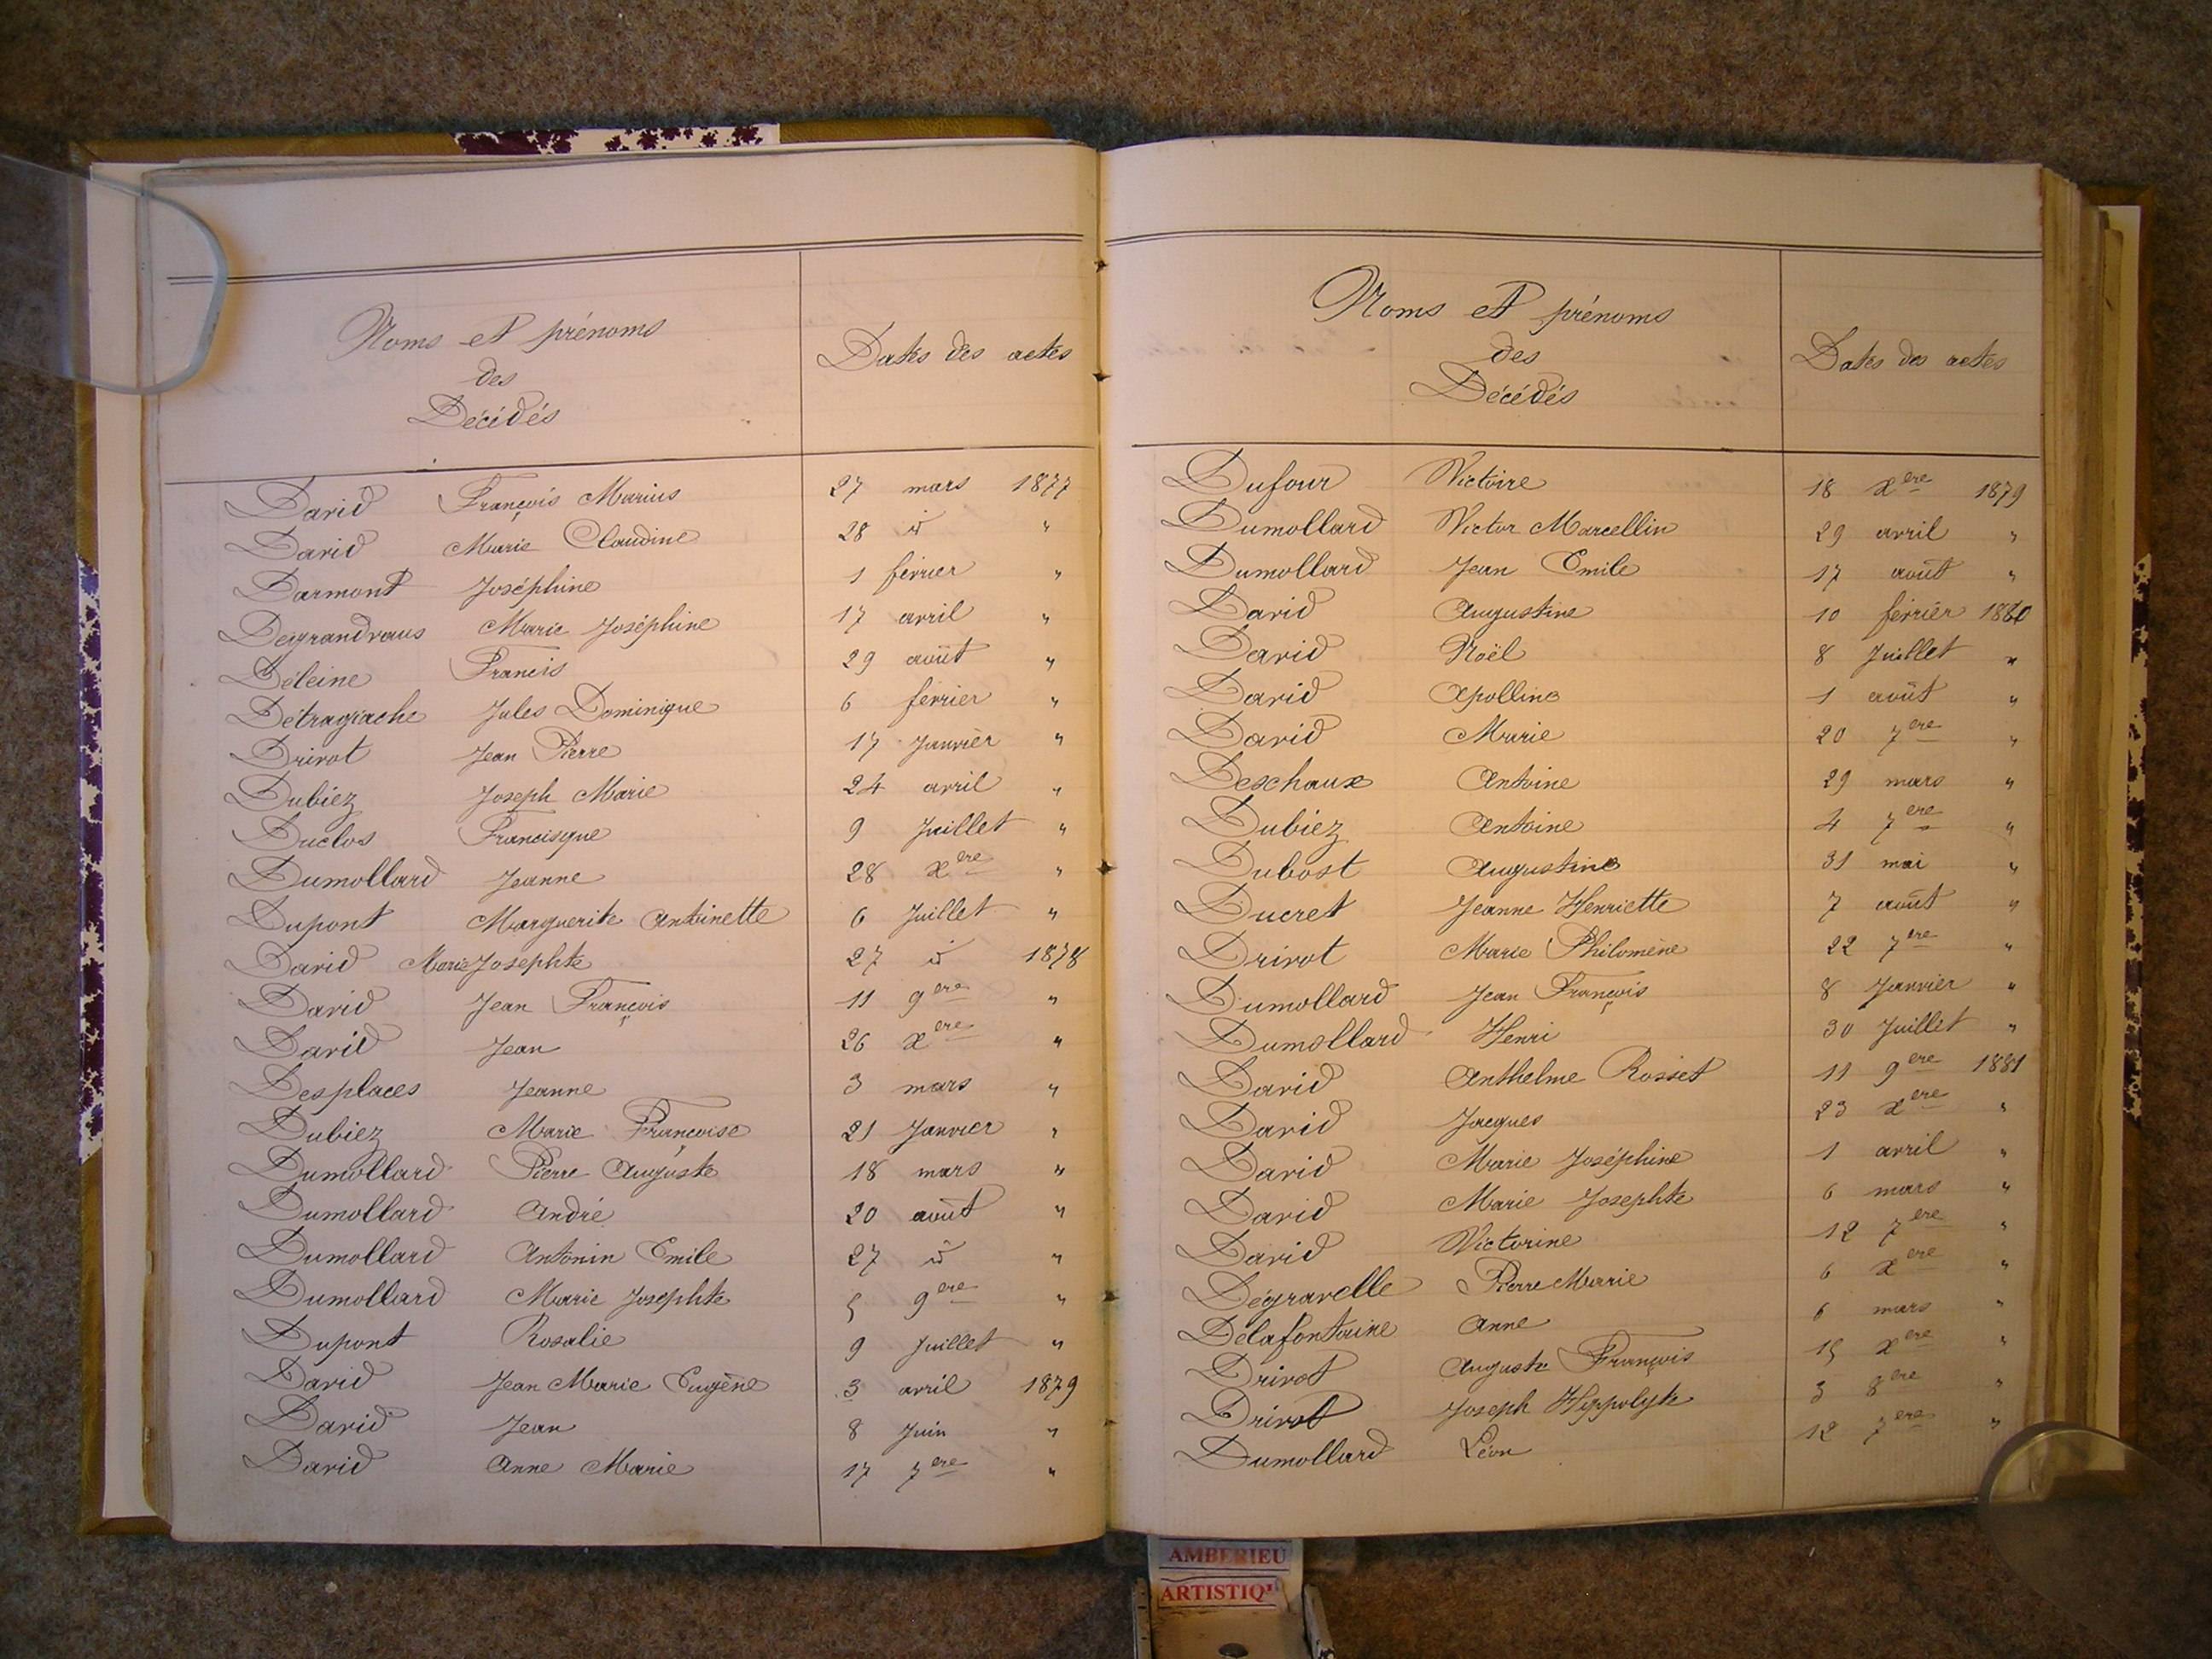 Noms et prénoms
des
Décédés
Dates des actes
David François Marius 27 mars 1877
David Marie Claudine 28 id "
Darmont Joséphine 1 février "
Degrandvaus Marie Joséphine 17 avril "
Déleine Francis 29 août "
Détragiache Jules Dominique 6 février "
Drivot Jean Pierre 17 Janvier "
Dubiez Joseph Marie 24 avril "
Duclos Francisque 9 Juillet "
Dumollard Jeanne 28 Xere "
Dupont Marguerite Antoinette 6 Juillet "
David Marie Josephte 27 id 1878
David Jean François 11 9ere "
David Jean 26 Xere "
Desplaces Jeanne 3 mars "
Dubiez Marie Françoise 21 Janvier "
Dumollard Pierre Auguste 18 mars "
Dumollard André 20 août "
Dumollard Antonin Emile 27 id "
Dumollard Marie Josephte 5 9ere "
Dupont Rosalie 9 Juillet "
David Jean Marie Eugène 3 avril 1879
David Jean 8 Juin "
David Anne Marie 17 7ere "
Noms et prénoms
des
Décédés
Dates des actes
Dufour Victoire 18 Xere 1879
Dumollard Victor Marcellin 29 avril "
Dumollard Jean Emile 17 août "
David Augustine 10 février 1880
David Noël 8 Juillet "
David Apolline 1 août "
David Marie 20 7ere "
Deschaux Antoine 29 mars "
Dubiez Antoine 4 7ere "
Dubost Augustine 31 mai "
Ducret Jeanne Henriette 7 août "
Drivot Marie Philomène 22 7ere "
Dumollard Jean François 8 Janvier "
Dumollard Henri 30 Juillet "
David Anthelme Rosset 11 9ere 1881
David Jacques 23 Xere "
David Marie Joséphine 1 avril "
David Marie Josephte 6 mars "
David Victorine 12 7ere "
Dégravelle Pierre Marie 6 Xere "
Delafontaine Anne 6 mars "
Drivot Auguste François 15 Xere "
Drivot Joseph Hippolyte 3 8ere "
Dumollard Léon 12 7ere "
AMBERIEU
ARTISTIQ